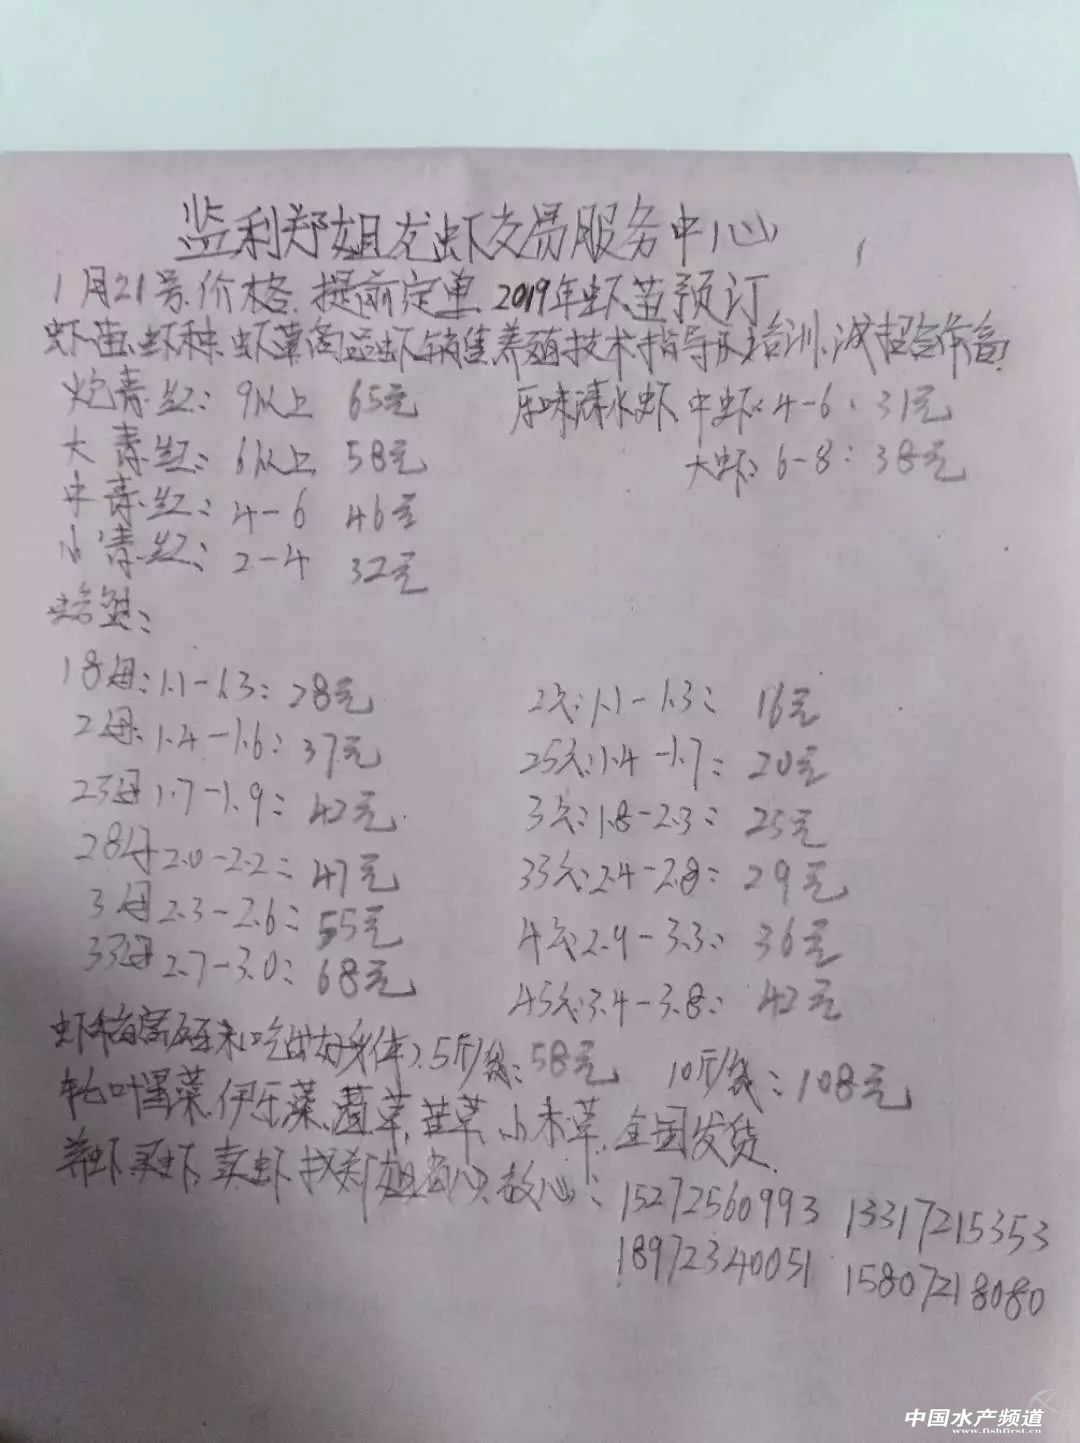 监利郑姐龙虾交易服务中心
1月21号.价格.提前定单.2019年虾苗预订
虾苗.虾种.虾草商品虾销售养殖技术指导及培训.诚招合作商!
炮青.红: 9以上 65元
原味清水虾 中虾: 4-6: 31元
大青.红: 6以上 58元
大虾: 6-8: 38元
中青.红: 4-6 46元
小青.红: 2-4 32元
螃蟹:
18母: 1.1-1.3: 28元
2公: 1.1-1.3: 16元
2母: 1.4-1.6: 37元
25公: 1.4-1.7: 20元
23母 1.7-1.9: 42元
3公: 1.8-2.3: 25元
28母 2.0-2.2: 47元
33公: 2.4-2.8: 29元
3母 2.3-2.6: 55元
4公: 2.9-3.3: 36元
33母 2.7-3.0: 68元
45公: 3.4-3.8: 42元
虾稻 5斤/袋: 58元 10斤/袋: 108元
轮叶黑菜.伊乐菜.苦草.小米草.全国发货.
养虾.买虾.卖虾.找郑姐省心.放心: 15272560993 13317215353
18972340051 15807218080
中国水产频道
www.fishfirst.cn